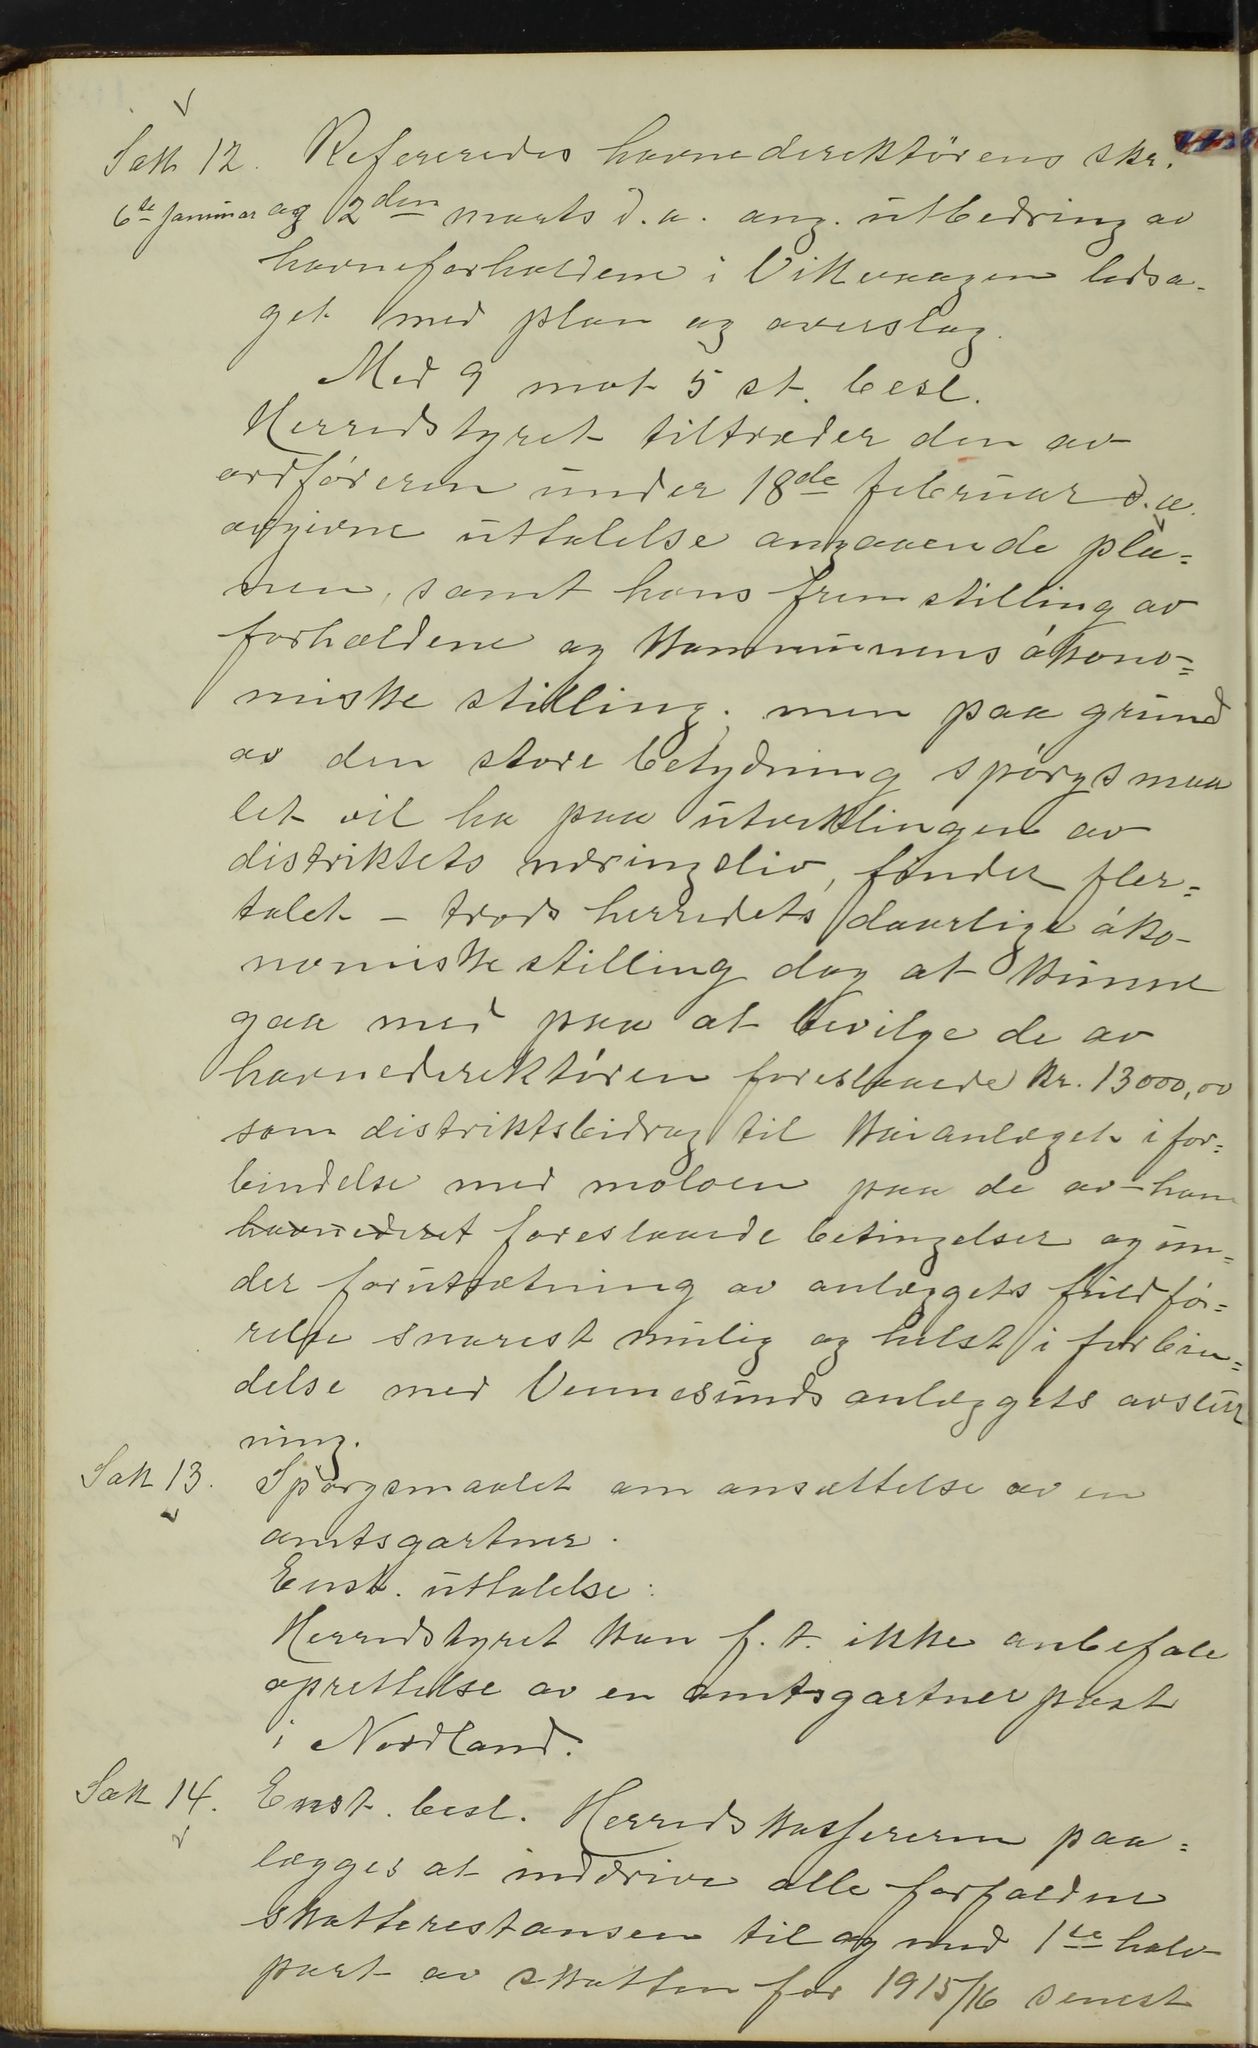 Sak 12. Refereredes havnedirektørens skr.
6te januar og 2den marts d.a. ang. utbedring av
havneforholdene i Vikvaagen ledsa-
get med plan og overslag.
Med 9 mot 5 st. besl.
Herredstyret tiltræder den av
ordføreren under 18de februar d.a.
avgivne uttalelse angaaende pla=
nen, samt hans fremstilling av
forholdene og kommunens økono=
miske stilling; men paa grund
av den store betydning spørgsmaa
let vil ha paa utviklingen av
distriktets næringsliv, finder fler=
talet - trods herredets daarlige øko-
nomiske stilling dog at kunne
gaa med paa at bevilge de av
havnedirektøren foreslaaede kr. 13000,00
som distriktsbidrag til kaianlæget i for=
bindelse med moloen paa de av ham
havnedirekt foreslaaede betingelser og un=
der forutsætning av anlæggets fuldfø=
relse snarest mulig og helst i forbin=
delse med Vennesunds anlæggets avslut
ning.
Sak 13. Spørgsmaalet om ansættelse av en
amtsgartner.
Enst. uttalelse:
Herredstyret kan f. t. ikke anbefale
oprettelse av en amtsgartnerpost
i Nordland.
Sak 14. Enst. besl. Herredskassereren paa=
lægges at inddrive alle forfaldne
skatterestanser til og med 1ste halv
part av skatten for 1915/16 senest